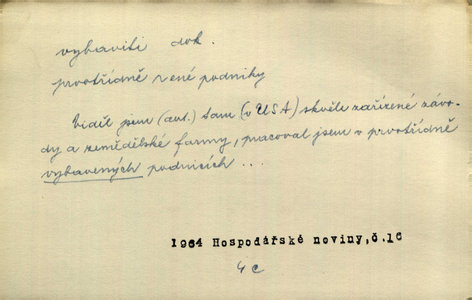 vybaviti dok.
prvotřídně v ené podniky
Viděl jsem (aut.) tam (v USA) skvěle zařízené závo-
dy a zemědělské farmy, pracoval jsem v prvotřídně
vybavených podnicích ...
1964 Hospodářské noviny,č.16
4c